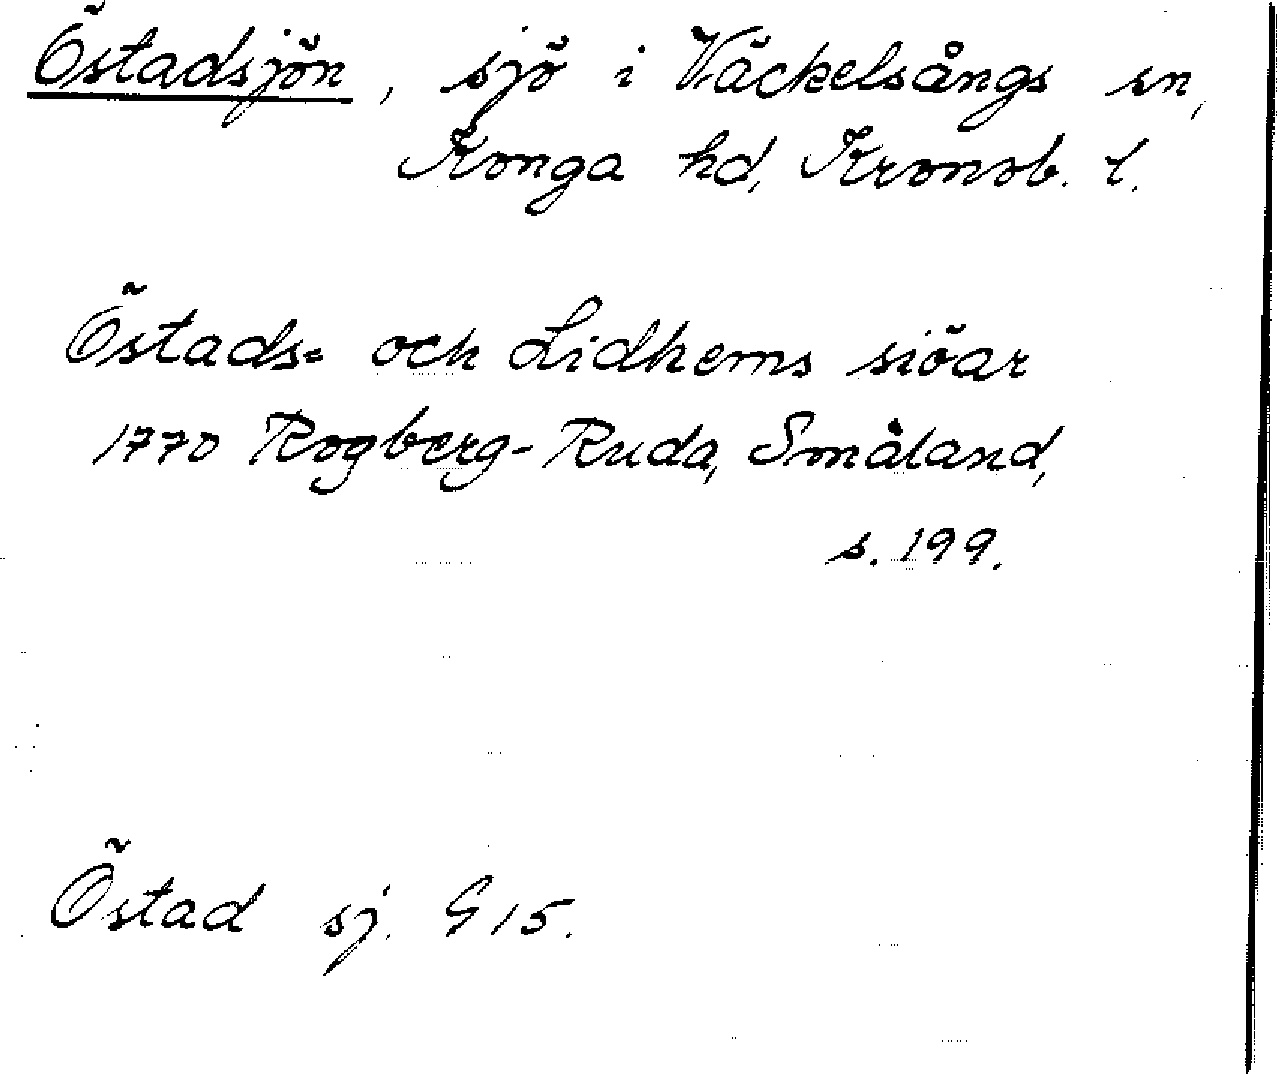 Östadsjön, sjö i Väckelsångs sn,
Konga hd, Kronob. l.
Östads= och Lidhems siöar
1770 Rogberg-Ruda, Småland,
s. 199.
Östad sj. G 15.